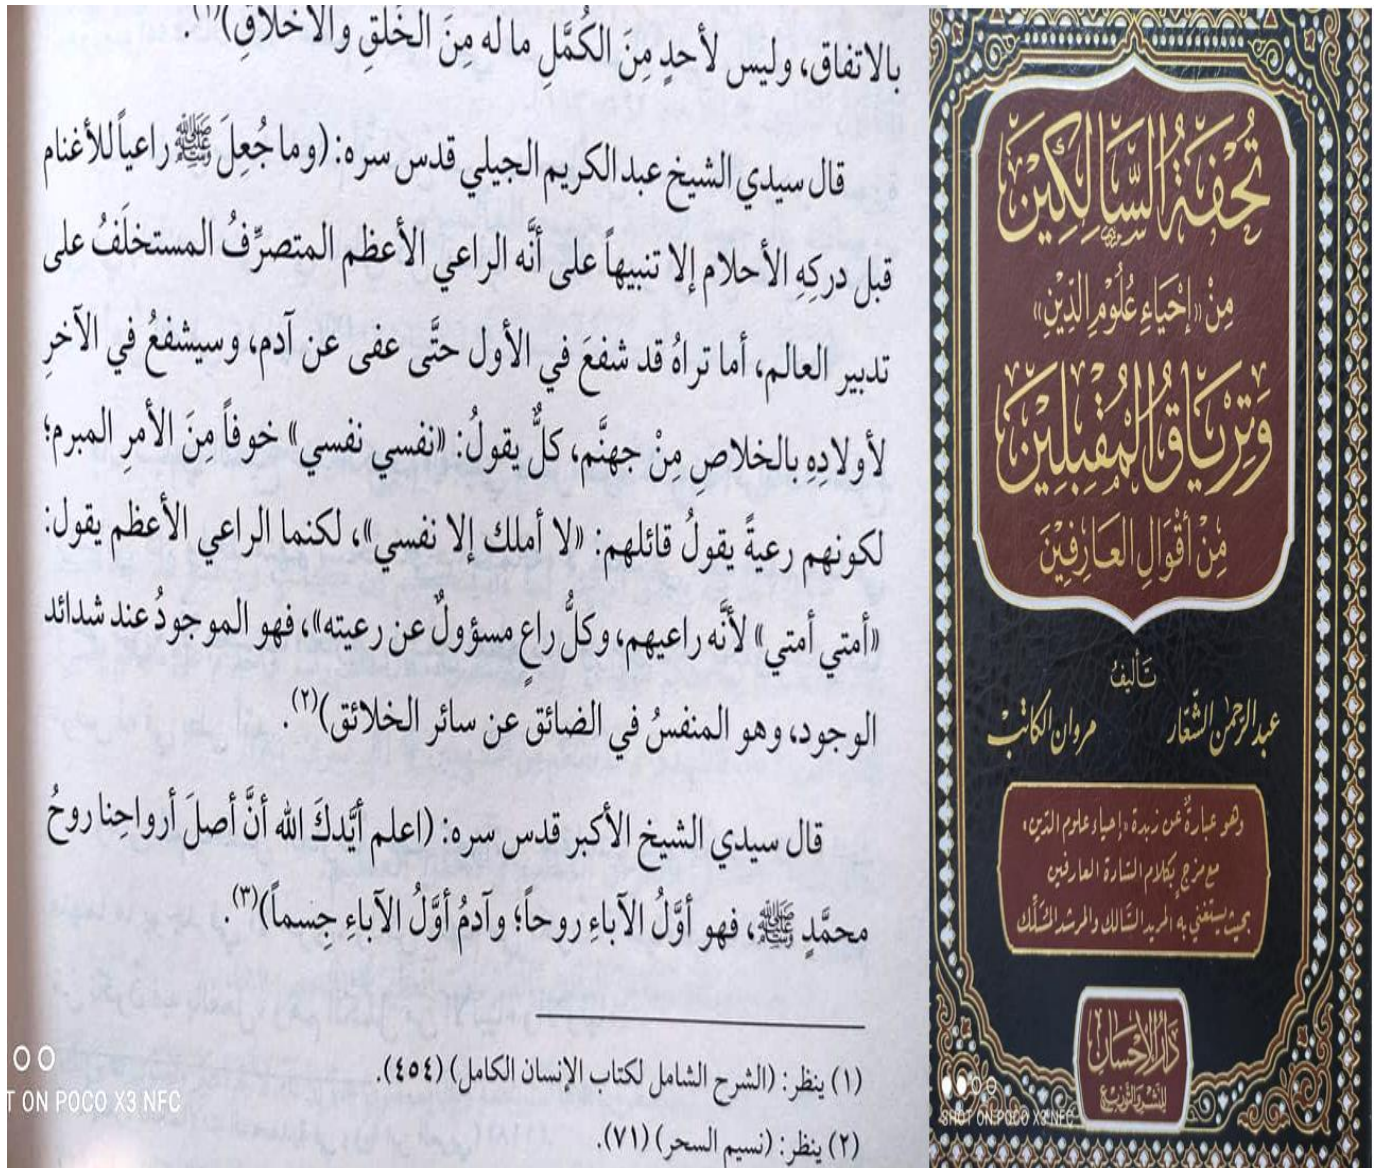 بالاتفاق، وليس لأحدٍ مِنَ الكُمَّلِ ما له مِنَ الخَلْقِ والأخلاقِ)(١).
قال سيدي الشيخ عبد الكريم الجيلي قدس سره: (وما جُعِلَ ﷺ راعياً للأغنام
قبل دركِهِ الأحلام إلا تنبيهاً على أنَّه الراعي الأعظم المتصرِّفُ المستخلَفُ على
تدبير العالم، أما تراهُ قد شفعَ في الأول حتَّى عفى عن آدم، وسيشفعُ في الآخرِ
لأولادِهِ بالخلاصِ مِنْ جهنَّم، كلٌّ يقولُ: «نفسي نفسي» خوفاً مِنَ الأمرِ المبرم؛
لكونهم رعيةً يقولُ قائلهم: «لا أملك إلا نفسي»، لكنما الراعي الأعظم يقول:
«أمتي أمتي» لأنَّه راعيهم، وكلُّ راعٍ مسؤولٌ عن رعيته»، فهو الموجودُ عند شدائد
الوجود، وهو المنفسُ في الضائق عن سائر الخلائق)(٢).
قال سيدي الشيخ الأكبر قدس سره: (اعلم أيَّدكَ الله أنَّ أصلَ أرواحِنا روحُ
محمَّدٍ ﷺ، فهو أوَّلُ الآباءِ روحاً؛ وآدمُ أوَّلُ الآباءِ جِسماً)(٣).
(١) ينظر: (الشرح الشامل لكتاب الإنسان الكامل) (٤٥٤).
(٢) ينظر: (نسيم السحر) (٧١).
T ON POCO X3 NFC
تُحْفَةُ السَّالِكِيْنَ
مِنْ «إِحْيَاءِ عُلُوْمِ الدِّيْنِ»
وَتِرْيَاقُ المُقْبِلِيْنَ
مِنْ أَقْوَالِ العَارِفِيْنَ
تَأليفُ
عبد الرحمن الشّعّار
مروان الكاتب
وهو عبارةٌ عن زبدة «إحياء علوم الدّين»
مع مزجٍ بكلام السّادة العارفين
بحيث يستغني به المريد السّالك والمرشد المسَلِّك
دَارُ الإِحْسَانِ
للنَّشْرِ والتَّوزيع
SHOT ON POCO X3 NFC